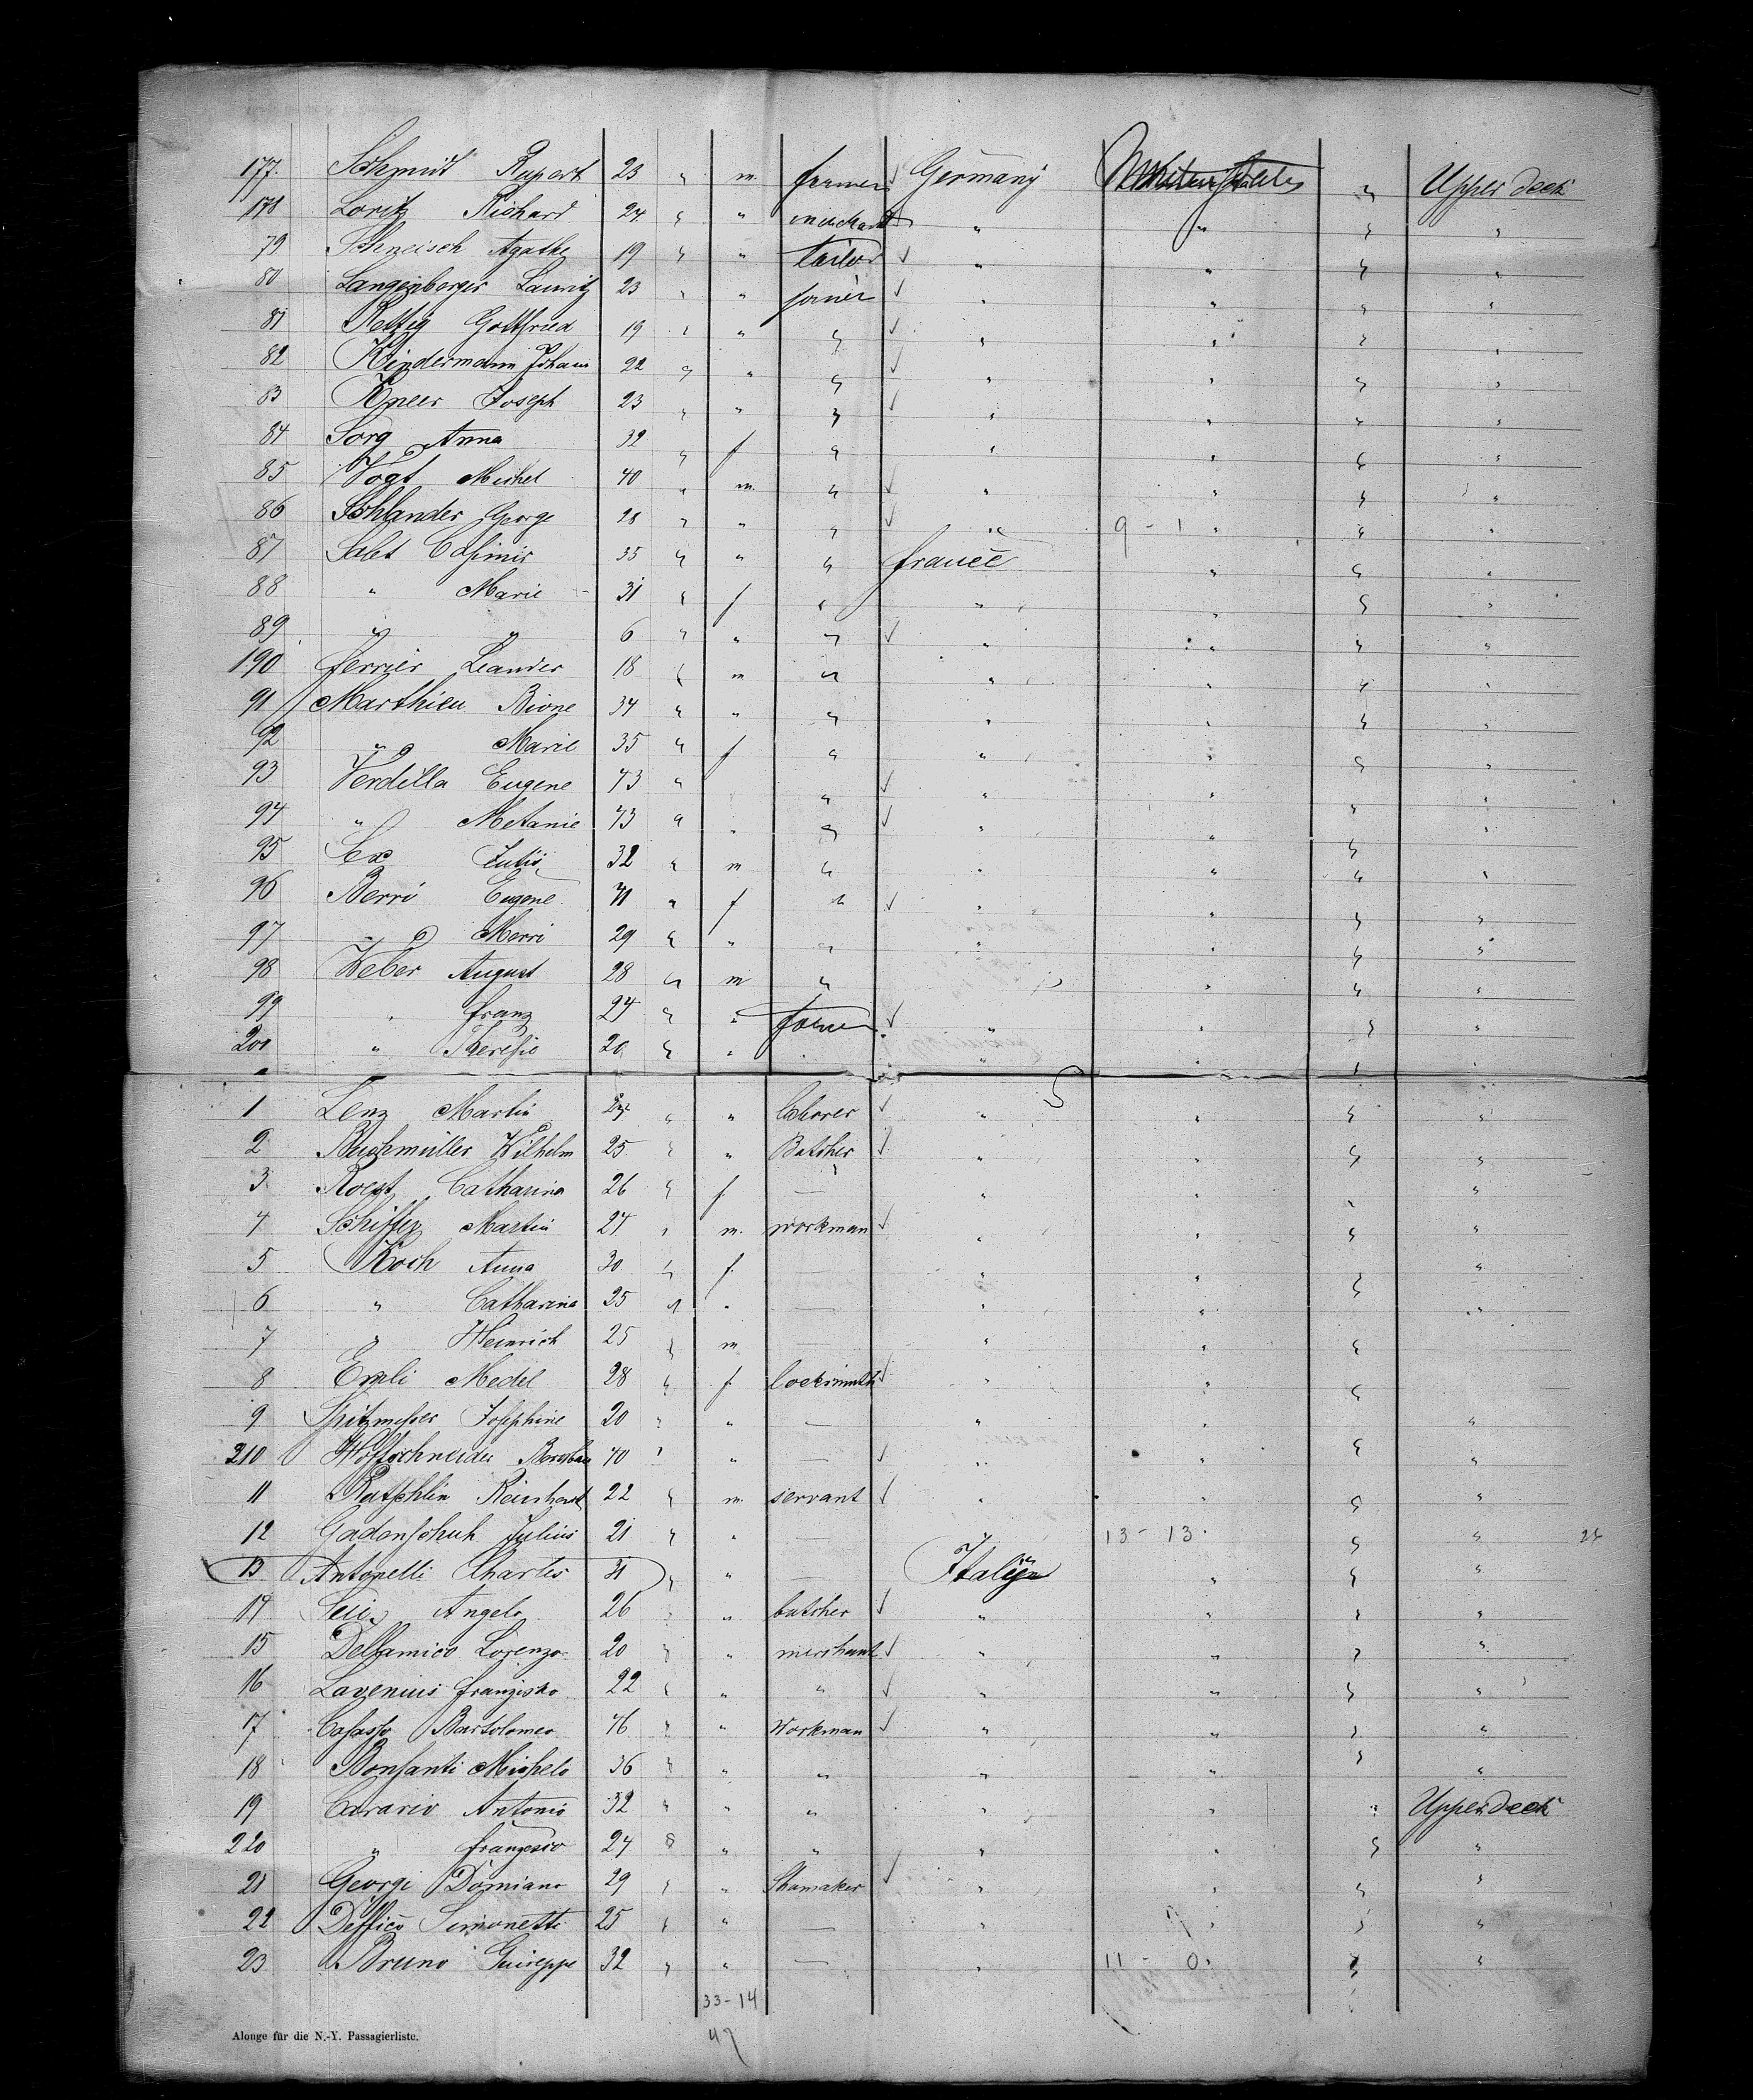 177. Schmidt Rupert 23 " m. farmer Germany United States " Upper deck
178 Loritz Richard 24 " " merchant " " " "
79 Schneisch Agathe 19 " " tailor " " " "
80 Langenberger Lauritz 23 " " " " " "
81 Rettig Gottfried 19 " " " " " " "
82 Kindermann Johann 22 " " " " " " "
83 Kneer Joseph 23 " " " " " " "
84 Sorg Anna 32 " f " " " " "
85 Vogt Michel 40 " m. " " " " "
86 Schlander George 28 " " " " 9 - 1 " " "
87 Salet Casimir 35 " " " france " " "
88 " Marie 31 " f " " " " "
89 " " 6 " " " " " " "
190 ferrier Leander 18 " m " " " " "
91 Marthieu Bione 34 " " " " " " "
92 " Marie 35 " f " " " " "
93 Verdilla Eugene 43 " " " " " "
94 " Metanie 43 " " " " " " "
95 32 " m " " " " "
96 Berri Eugene 41 " f " " " " "
97 " Merri 29 " " " " " " "
98 Weber August 28 " m " " " "
99 " franz 24 " " " " " "
200 " Theresie 20 " " " " " "
1 Lenz Martin 24 " " laborer " " " "
2 Buchmüller Wilhelm 25 " " Butcher " " " "
3 Catharina 26 " f. — " " " "
4 Martin 24 " m. workman " " " "
5 Koch Anna 30 " f. — " " " "
6 " Catharina 25 " " — " " "
7 " Heinrich 25 " m — " " "
8 Emli Medel 28 " f. locksmith " " "
9 Spitzmesser Josephine 20 " " — " " "
210 Hoffschneider 40 " " — " " " "
11 Rutschlin Reinhard 22 " m. servant " " " "
12 Gadonschuh Julius 21 " " — 13 - 13 " " 26
13 Antonelli Charles 31 " " — Italien " " "
14 Angelo 26 " " butcher " " " "
15 Dellamico Lorenzo 20 " " merchant " " " "
16 Lavenius franzisko 22 " " " " " " "
17 Casasso Bartolomeo 46 " " Workman " " " "
18 Bonfanti Michele 36 " " " " " " "
19 Carario Antonio 32 " " " " " " Upper deck
220 " franzesco 24 " " " " " " "
21 Georgi Domiano 29 " " Shumaker " " " "
22 Deflico Simonetti 25 " " — " " " "
23 Bruno Guiseppe 32 " " — " 11 - 0 " "
33-14
47
Alonge für die N.-Y. Passagierliste.